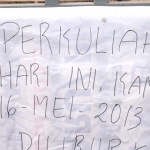 PERKULIAH
HARI INI, KAM
16-MEI-2013
DILIBUR